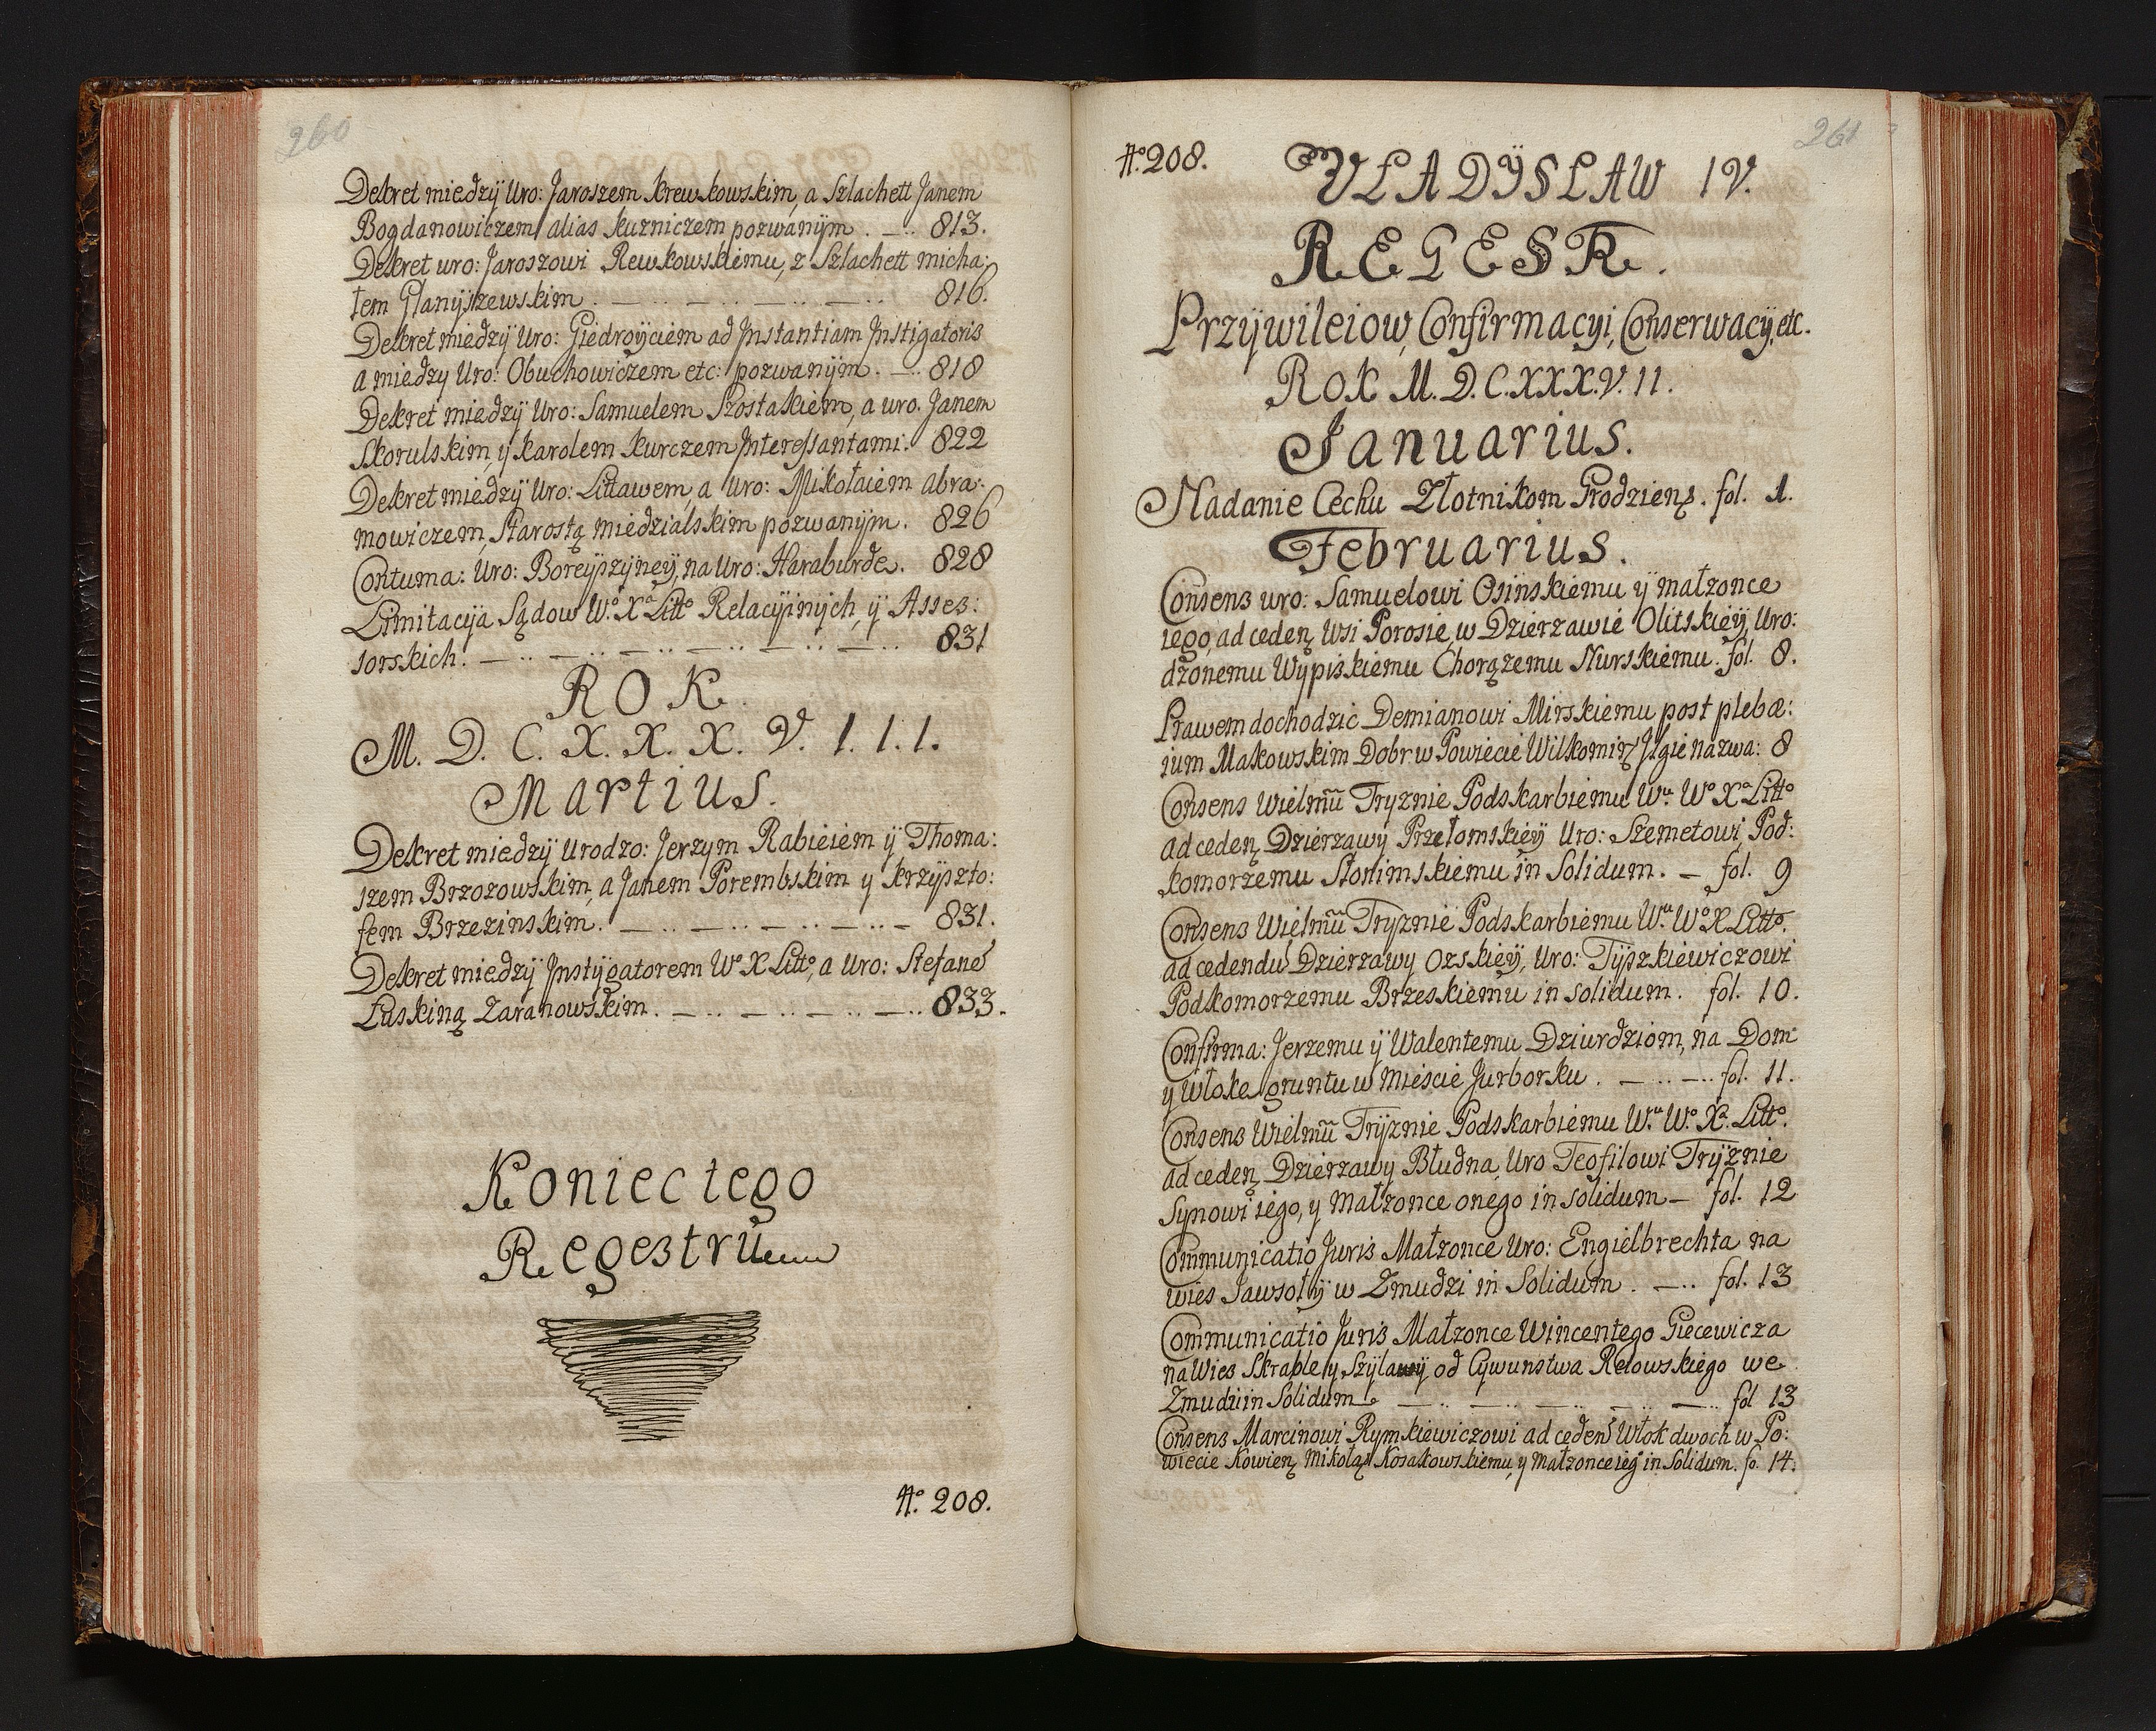 260
Dekret miedzÿ Uro: Jaroszem Krewkowskim, a Szlachett Janem
Bogdanowiczem alias Kuzniczem pozwanÿm . — .. 813.
Dekret uro: Jaroszowi Rewkowskiemu, z Szlachett micha:
łem Glanÿszewskim . — .. — .. — .. — .. 816.
Dekret miedzÿ Uro: Giedroÿciem ad Instantiam Instigatoris
a miedzy Uro: Obuchowiczem etc: pozwanÿm . — .. 818
Dekret miedzÿ Uro: Samuelem Szostakiem, a uro. Janem
Skorulskim, ÿ Karolem Kurczem Interessantami: 822
Dekret miedzÿ Uro: Littawem a Uro: Mikołaiem Abra:
mowiczem, Starostą miedzialskim pozwanÿm. 826
Contuma: Uro: Boreÿszÿneÿ, na Uro: Haraburde. 828
Limitacÿa Sądow Wº Xª Littº Relacÿinÿch, ÿ Asses:
sorskich. — .. — .. — .. — .. — .. — .. 831
ROK.
M. D. C. X. X. X. V. I. I. I.
Martius.
Dekret miedzÿ Urodzo: Jerzym Rabieiem ÿ Thoma:
szem Brzozowskim, a Janem Porembskim y Krzÿszto:
fem Brzezinskim. — .. — .. — .. — .. — 831.
Dekret miedzÿ Instÿgatorem Wº X Littº, a Uro: Stefane
Łuskiną Zaranowskim. — .. — .. — .. — .. 833.
Koniec tego
Regestru
Nº. 208.
261
Nº 208.
VLADŸSLAW IV.
REGESTR.
Przÿwileiow, Confirmacyi, Conserwacÿ, etc.
Rok M. D. C. XXX. V. II.
Januarius.
Nadanie Cechu Złotnikom Grodzienz. fol. 1.
Februarius.
Consens uro: Samuelowi Osinskiemu ÿ małzonce
iego, ad ceden̨ Wsi Porosie, w Dzierzawie Olitskieÿ, Uro:
dzonemu Wÿpiskiemu Chorązemu Nurskiemu. fol. 8.
Prawem dochodzic Demianowi Mirskiemu post plebæ:
ium Makowskim Dobr w Powiecie Wilkomirz Ilgie nazwa: 8
Consens Wielmu Tryznie Podskarbiemu Wu. Wº Xª Littº
ad ceden̨ Dzierzawy Przełomskieÿ Uro: Szemetowi, Pod:
komorzemu Słonimskiemu in Solidum. — fol. 9
Consens Wielmu Tryznie Podskarbiemu Wu. Wº X Littº.
ad cedendu Dzierzawy Ozskieÿ, Uro: Tÿszkiewiczowi
Podkomorzemu Brzeskiemu in solidum. fol. 10.
Confirma: Jerzemu ÿ Walentemu Dziurdziom, na Dom
y włoke gruntu w Miescie Jurborku . — .. — .. fol. 11.
Consens Wielmu Trÿznie Podskarbiemu Wu. Wº. Xª. Littº.
ad ceden̨ Dzierzawy Błudna, Uro Teofilowi Trÿznie
Synowi iego, y Małzonce onego in solidum — fol. 12
Communicatio Juris Małzonce Uro: Engielbrechta na
wies Jawsołÿ w Zmudzi in Solidum . — .. fol. 13
Communicatio Juris Małzonce Wincentego Giecewicza
na Wies Skrable y Szÿlawÿ od Cywunstwa Retowskiego we
Zmudzi in Solidum — .. — .. — .. — .. — .. fol 13
Consens Marcinowi Rymkiewiczowi ad ceden Włok dwoch w Po:
wiecie Kowien̨ Mikołaÿ Kosakowskiemu, y Małzonce ieg in Solidum. fo. 14.